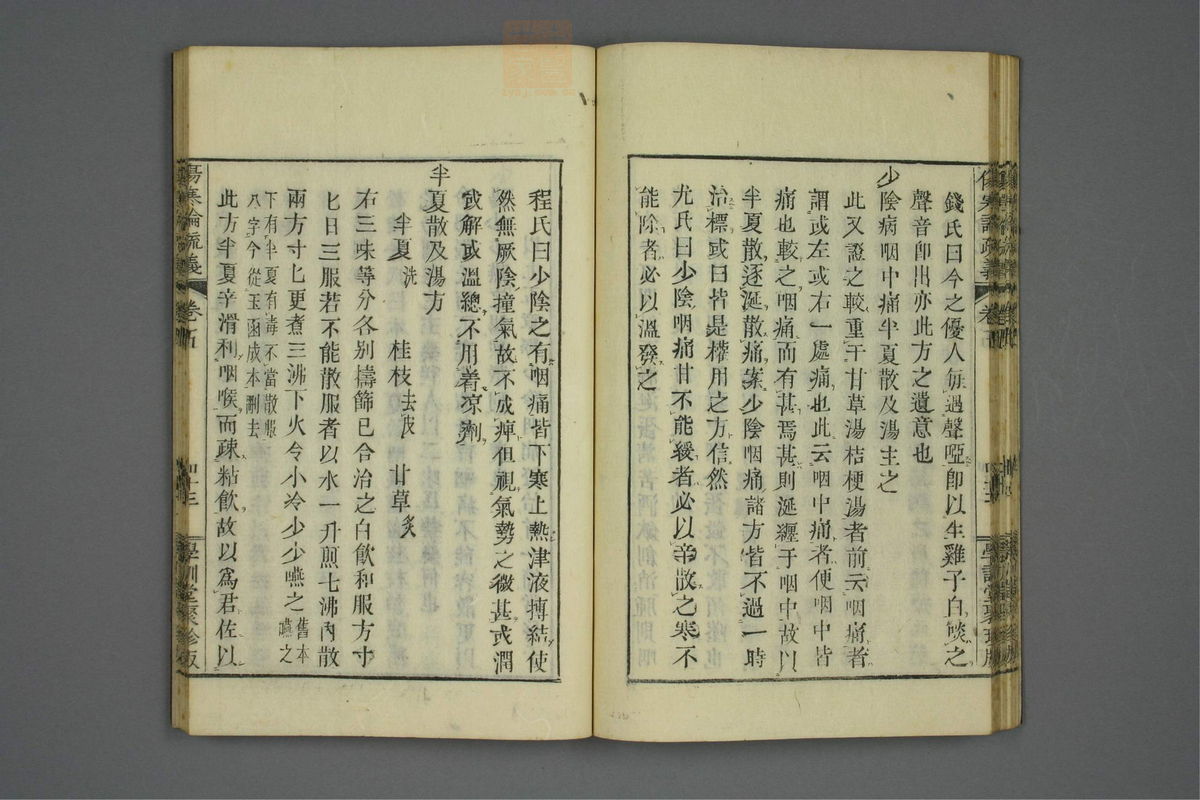 錢氏曰今之優人每遇聲啞卽以生雞子白啖之
聲音卽出亦此方之遺意也
少陰病咽中痛半夏散及湯主之
此又證之較重于甘草湯桔梗湯者前云咽痛者
謂或左或右一處痛也此云咽中痛者便咽中皆
痛也較之咽痛而有甚焉甚則涎纏于咽中故以
半夏散逐涎散痛案少陰咽痛諸方皆不過一時
治標或曰皆是權用之方信然
尤氏曰少陰咽痛甘不能緩者必以辛散之寒不
能除者必以溫發之
程氏曰少陰之有咽痛皆下寒上熱津液搏結使
然無厥陰撞氣故不成痺但視氣勢之微甚或潤
或解或溫總不用着凉劑
半夏散及湯方
半夏洗 桂枝去皮 甘草炙
右三味等分各别擣篩已合治之白飲和服方寸
匕日三服若不能散服者以水一升煎七沸內散
兩方寸匕更煮三沸下火令小冷少少嚥之舊本嚥之
下有半夏有毒不當散服
八字今從玉函成本刪去
此方半夏辛滑利咽喉而疎粘飲故以爲君佐以
傷寒論疏義 卷五 四十三 學訓堂聚珍版